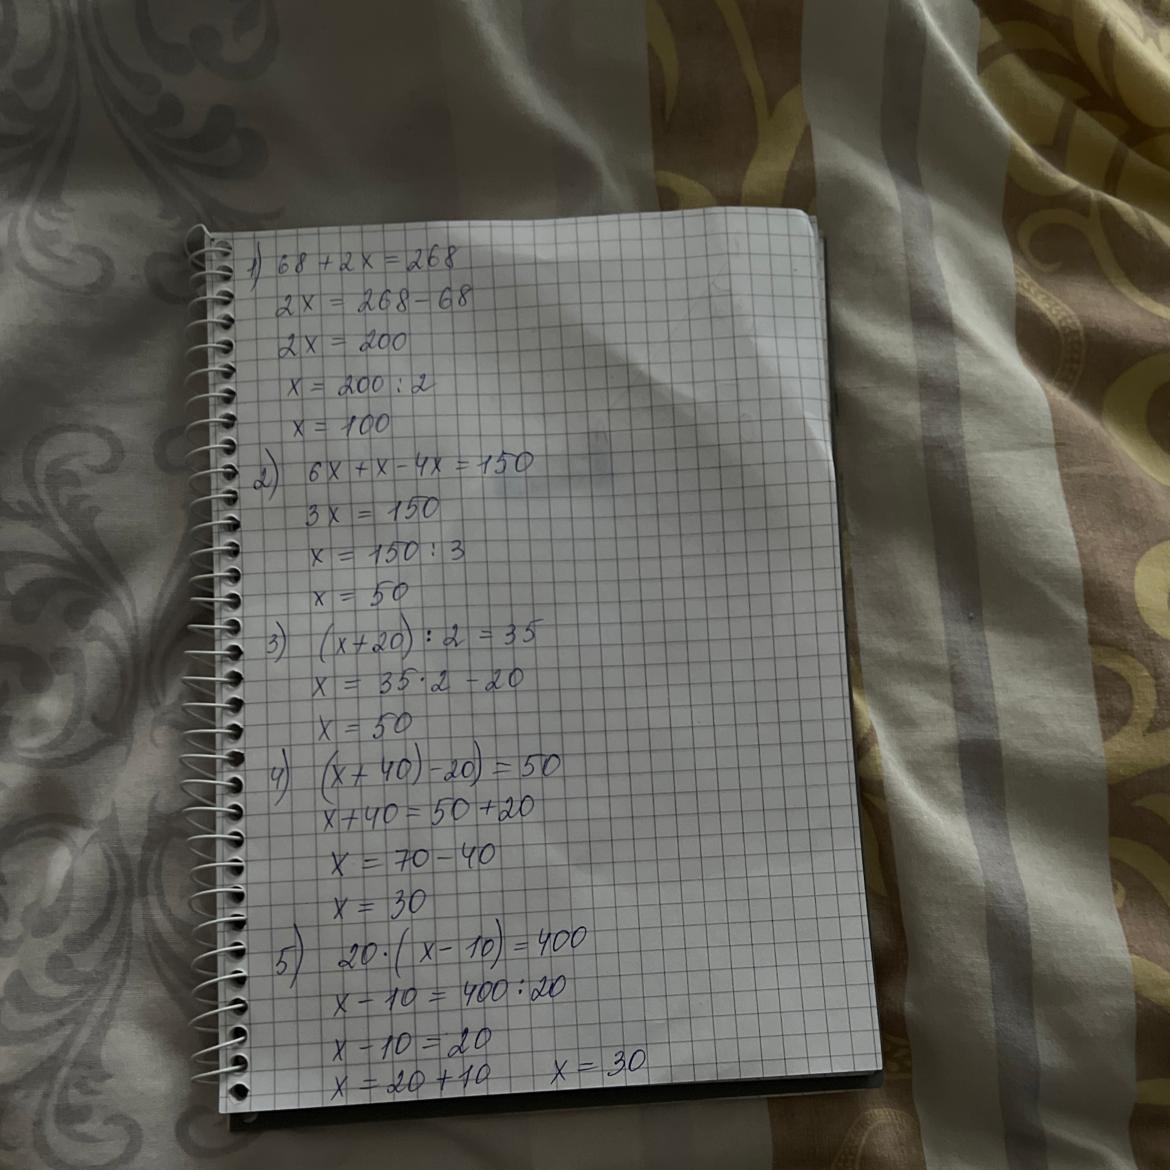 1) 68 + 2x = 268
2x = 268 - 68
2x = 200
x = 200 : 2
x = 100
2) 6x + x - 4x = 150
3x = 150
x = 150 : 3
x = 50
3) (x+20) : 2 = 35
x = 35 · 2 - 20
x = 50
4) (x + 40) - 20) = 50
x + 40 = 50 + 20
x = 70 - 40
x = 30
5) 20 · (x - 10) = 400
x - 10 = 400 : 20
x - 10 = 20
x = 20 + 10 x = 30